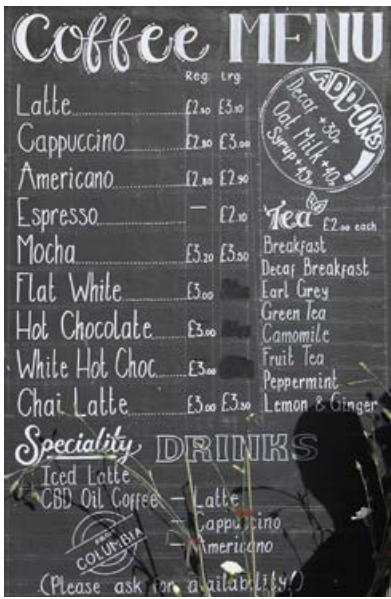 Coffee MENU
Reg. Lrg.
Latte £2.80 £3.10
Cappuccino £2.80 £3.00
Americano £2.80 £2.90
Espresso — £2.10
Mocha £3.20 £3.50
Flat White £3.00
Hot Chocolate £3.00
White Hot Choc £3.00
Chai Latte £3.00 £3.50
ADD-ONS
Decaf +30p
Oat Milk +40p
Syrup +45p
Tea £2.00 each
Breakfast
Decaf Breakfast
Earl Grey
Green Tea
Camomile
Fruit Tea
Peppermint
Lemon & Ginger
Speciality DRINKS
Iced Latte
CBD Oil Coffee – Latte
– Cappuccino
– Americano
FROM
COLUMBIA
(Please ask for availability!)